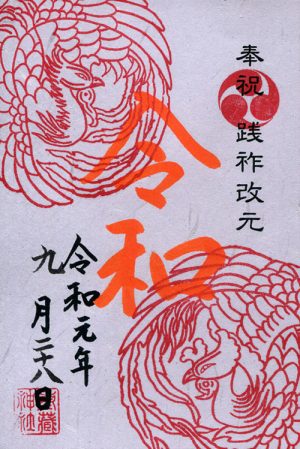 奉祝 践祚改元
令和
令和元年
九月二十八日